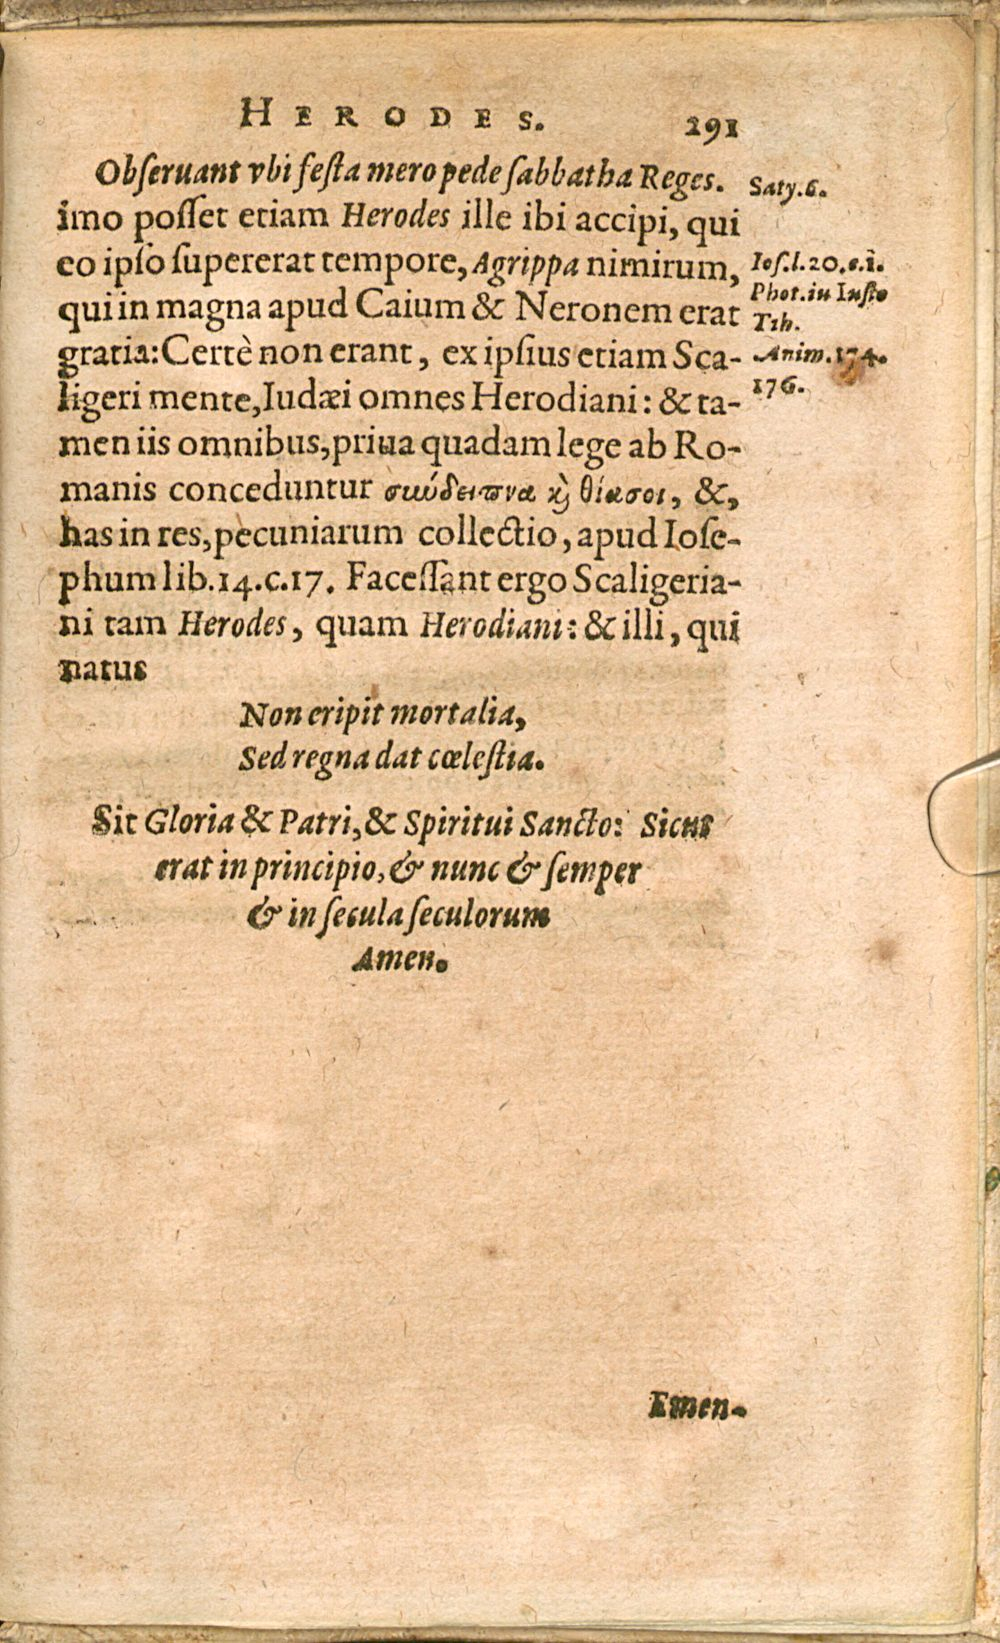 HERODES. 291
Obſeruant vbi feſta mero pede ſabbatha Reges. Saty.6.
imo poſſet etiam Herodes ille ibi accipi, qui
eo ipſo ſupererat tempore, Agrippa nimirum, Ioſ.l.20.c.1.
qui in magna apud Caium & Neronem erat Phot.in Iuſto
Tib.
gratia: Certè non erant, ex ipſius etiam Sca- Anim.174.
ligeri mente, Iudæi omnes Herodiani: & ta- 176.
men iis omnibus, priua quadam lege ab Ro-
manis conceduntur σωύδειπνα ϗ θίασοι, &,
has in res, pecuniarum collectio, apud Ioſe-
phum lib.14.c.17. Faceſſant ergo Scaligeria-
ni tam Herodes, quam Herodiani: & illi, qui
natus
Non eripit mortalia,
Sed regna dat cœleſtia.
Sit Gloria & Patri, & Spiritui Sancto: Sicut
erat in principio, & nunc & ſemper
& in ſecula ſeculorum
Amen.
Emen-